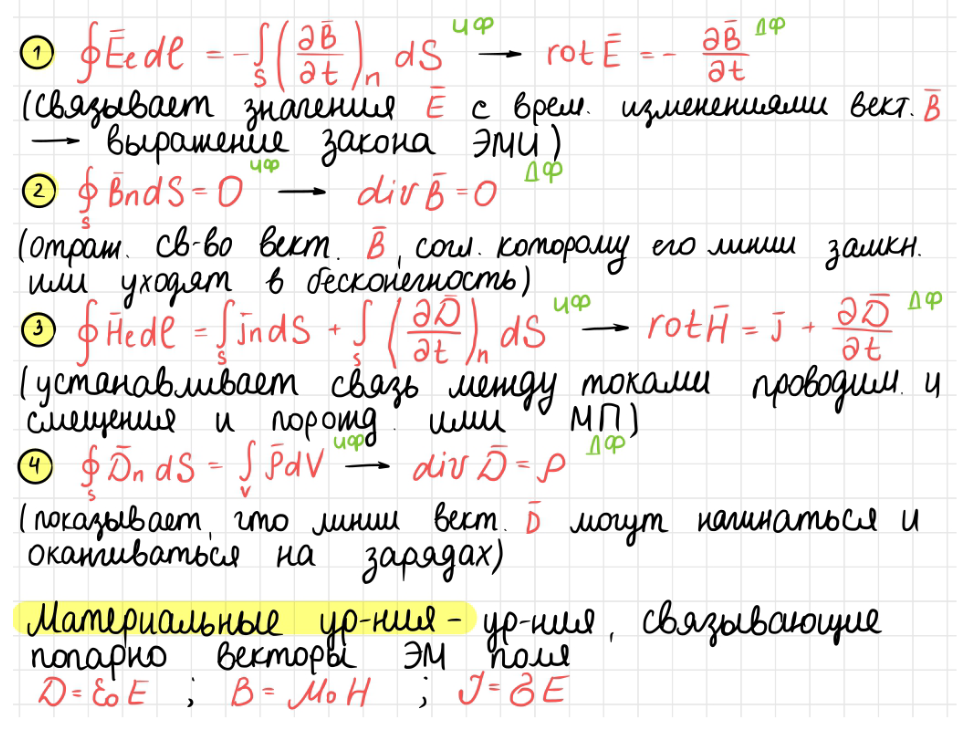 1 ∮Ēₑdℓ = -∫ₛ(∂B̄/∂t)ₙ dS ИФ → rotĒ = - ∂B̄/∂t ДФ
(связывает значения Ē с врем. изменениями вект. B̄
→ выражение закона ЭМИ)
2 ∮ₛ B̄ndS = 0 ИФ → divB̄ = 0 ДФ
(отраж. св-во вект. B̄, согл. которому его линии замкн.
или уходят в бесконечность)
3 ∮H̄ₑdℓ = ∫ₛ j̄ndS + ∫ₛ (∂D̄/∂t)ₙ dS ИФ → rotH̄ = j̄ + ∂D̄/∂t ДФ
(устанавливает связь между токами проводим. и
смещения и порожд. ими МП)
4 ∮ₛ D̄ₙ dS = ∫ᵥ ρ̄dV ИФ → div D̄ = ρ ДФ
(показывает, что линии вект. D̄ могут начинаться и
оканчиваться на зарядах)
Материальные ур-ния - ур-ния, связывающие
попарно векторы ЭМ поля
D = ε₀E ; B = μ₀H ; J = σE